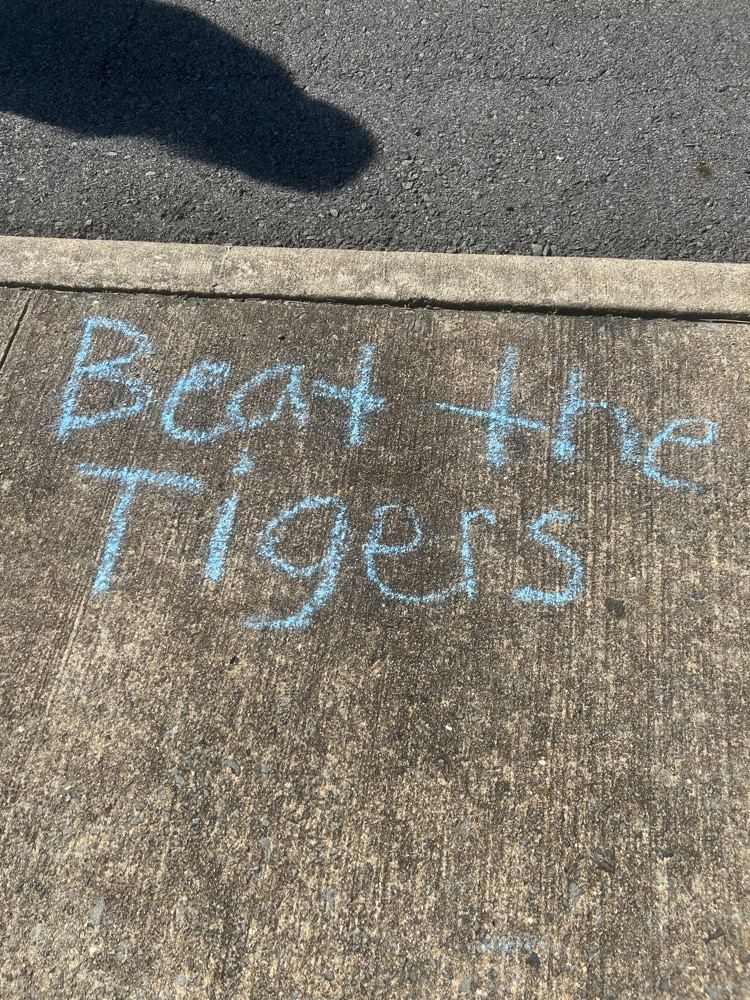 Beat the
Tigers